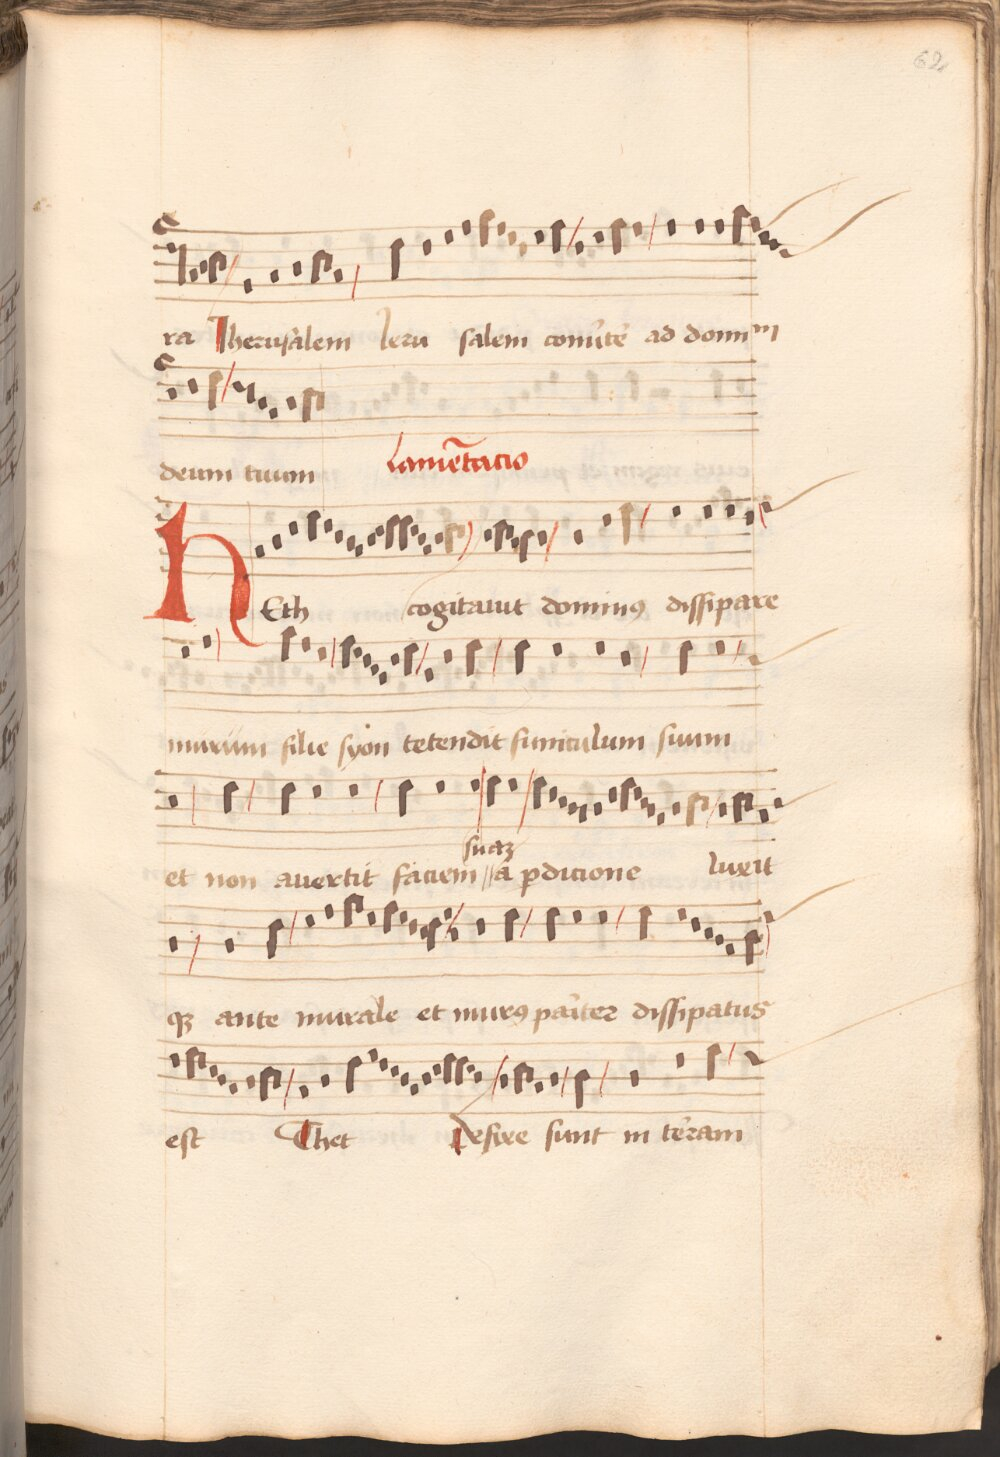 62
ra Iherusalem Ieru salem conũtẽ ad domĩm
deum tuum Lamẽtacio
HEth cogitauit dominꝰ dissipare
murum filie syon tetendit funiculum suum
suaz
et non auertit faciem // a ꝑdicione luxit
qꝫ ante murale et murꝰ pãiter dissipatus
est Thet Defixe sunt in terram